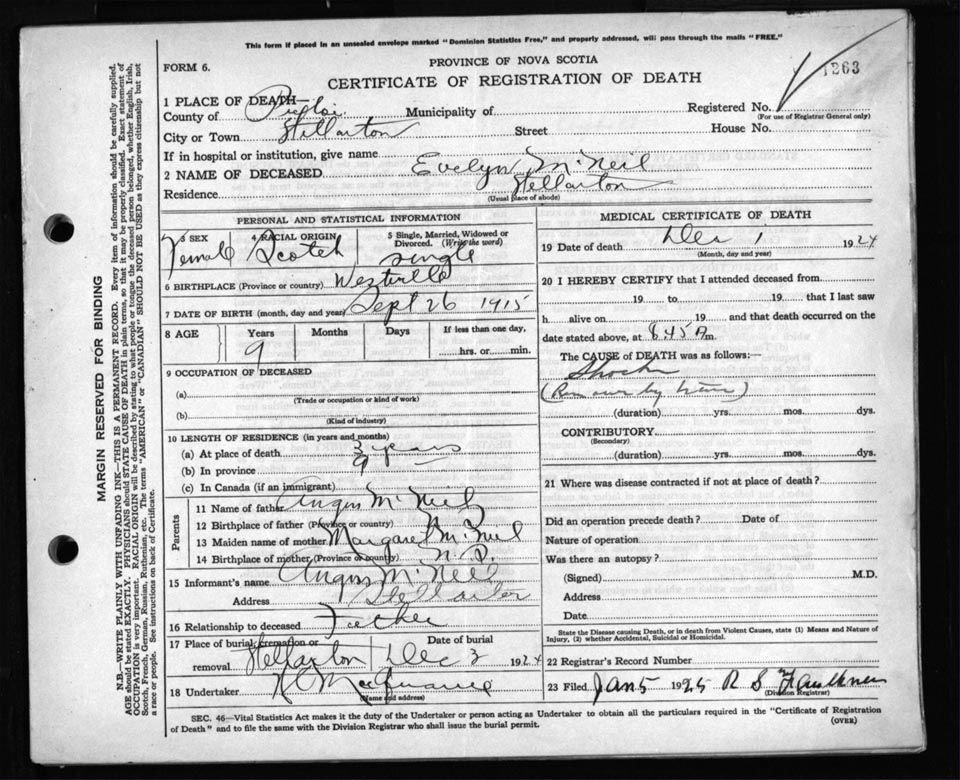 This form if placed in an unsealed envelope marked "Dominion Statistics Free," and properly addressed, will pass through the mails "FREE."
FORM 6.
PROVINCE OF NOVA SCOTIA
CERTIFICATE OF REGISTRATION OF DEATH
1263
1 PLACE OF DEATH—
County of Pictou Municipality of Registered No.
(For use of Registrar General only)
City or Town Stellarton Street House No.
If in hospital or institution, give name
2 NAME OF DECEASED Evelyn McNeil
Residence Stellarton
(Usual place of abode)
PERSONAL AND STATISTICAL INFORMATION
3 SEX 4 RACIAL ORIGIN 5 Single, Married, Widowed or Divorced. (Write the word)
Female Scotch single
6 BIRTHPLACE (Province or country) Westville
7 DATE OF BIRTH (month, day and year) Sept 26 1915
8 AGE Years Months Days If less than one day,
9 hrs. or min.
9 OCCUPATION OF DECEASED
(a)
(Trade or occupation or kind of work)
(b)
(Kind of industry)
10 LENGTH OF RESIDENCE (in years and months)
(a) At place of death 3 years
(b) In province 9
(c) In Canada (if an immigrant)
Parents
11 Name of father Angus McNeil
12 Birthplace of father (Province or country)
13 Maiden name of mother Margaret McNeil
14 Birthplace of mother (Province or country) N.S.
15 Informant's name Angus McNeil
Address Stellarton
16 Relationship to deceased Father
17 Place of burial, cremation or removal Stellarton Date of burial Dec 3 1924
18 Undertaker
(Name and address)
MEDICAL CERTIFICATE OF DEATH
19 Date of death Dec 1 1924
(Month, day and year)
20 I HEREBY CERTIFY that I attended deceased from
19 to 19 that I last saw
h alive on 19 and that death occurred on the
date stated above, at 8.45 A m.
The CAUSE of DEATH was as follows:—
Shock
(Run over by train)
(duration) yrs. mos. dys.
CONTRIBUTORY
(Secondary)
(duration) yrs. mos. dys.
21 Where was disease contracted if not at place of death?
Did an operation precede death? Date of
Nature of operation
Was there an autopsy?
(Signed) M.D.
Address
Date
State the Disease causing Death, or in death from Violent Causes, state (1) Means and Nature of Injury, (2) whether Accidental, Suicidal or Homicidal.
22 Registrar's Record Number
23 Filed Jan 5 1925 R S Faulkner
(Division Registrar)
SEC. 46—Vital Statistics Act makes it the duty of the Undertaker or person acting as Undertaker to obtain all the particulars required in the "Certificate of Registration
of Death" and to file the same with the Division Registrar who shall issue the burial permit.
(OVER)
MARGIN RESERVED FOR BINDING
N.B.—WRITE PLAINLY WITH UNFADING INK—THIS IS A PERMANENT RECORD. Every item of information should be carefully supplied.
AGE should be stated EXACTLY. PHYSICIANS should STATE CAUSE OF DEATH in plain terms, so that it may be properly classified. Exact statement of
OCCUPATION is very important. RACIAL ORIGIN will be described by stating to what people or tongue the deceased person belonged, whether English, Irish,
Scotch, French, German, Russian, Ruthenian, etc. The terms "AMERICAN" or "CANADIAN" SHOULD NOT BE USED as they express citizenship but not
a race or people. See instructions on back of Certificate.